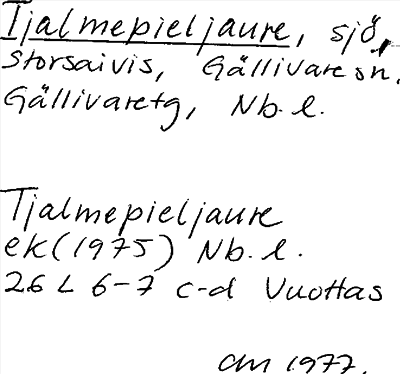 Tjalmepieljaure, sjö,
Storsaivis, Gällivare sn.
Gällivaretg, Nb. l.
Tjalmepieljaure
ek (1975) Nb. l.
26 L 6-7 c-d Vuottas
1977.